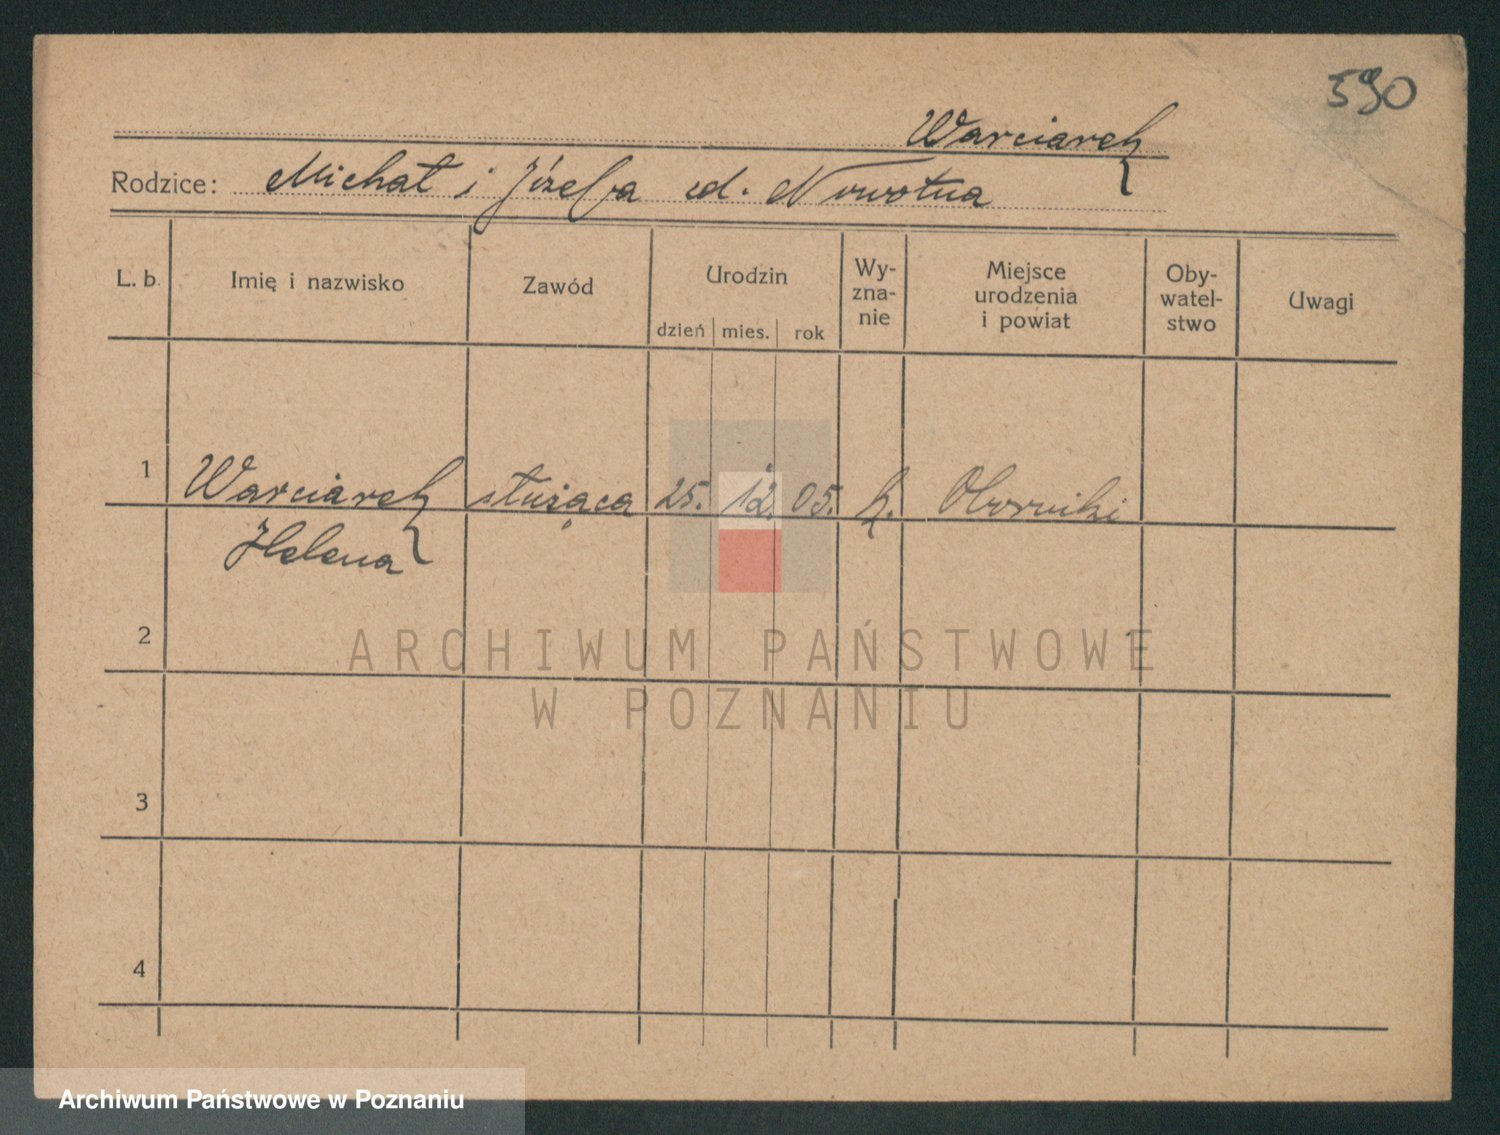 590
Warciarek
Rodzice: Michał i Józefa zd. Nowotna
L. b. Imię i nazwisko Zawód Urodzin Wy-
zna-
nie Miejsce
urodzenia
i powiat Oby-
watel-
stwo Uwagi
dzień mies. rok
1 Warciarek służąca 25. 12. 05. k. Oborniki
Helena
2
ARCHIWUM PAŃSTWOWE
W POZNANIU
3
4
Archiwum Państwowe w Poznaniu